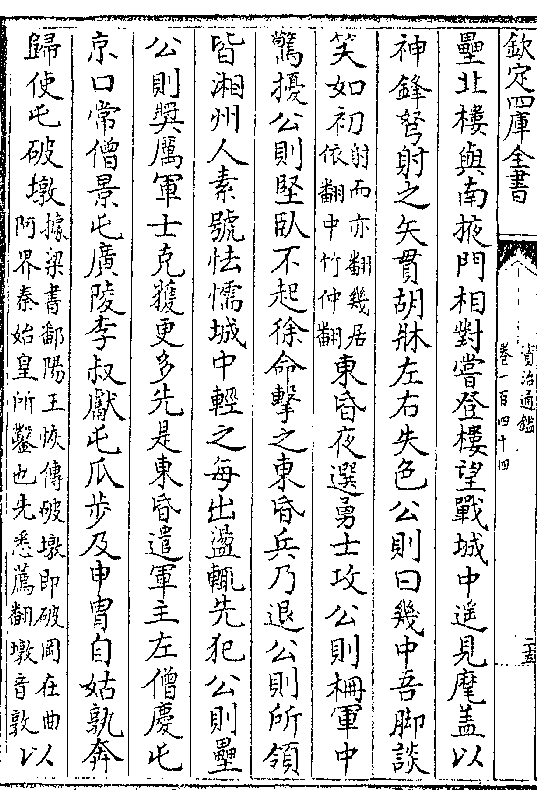 欽定四庫全書
資治通鑑
卷一百四十四
二十五
壘北樓與南掖門相對嘗登樓望戰城中遥見麾蓋以
神鋒弩射之矢貫胡牀左右失色公則曰幾中吾脚談
笑如初射而亦翻幾居依翻中竹仲翻東昏夜選勇士攻公則柵軍中
驚擾公則堅卧不起徐命擊之東昏兵乃退公則所領
皆湘州人素號怯懦城中輕之每出盪輒先犯公則壘
公則奬厲軍士克獲更多先是東昏遣軍主左僧慶屯
京口常僧景屯廣陵李叔獻屯瓜步及申胄自姑孰奔
歸使屯破墩據梁書鄱陽王恢傳破墩即破岡在曲阿界秦始皇所鑿也先悉薦翻墩音敦以